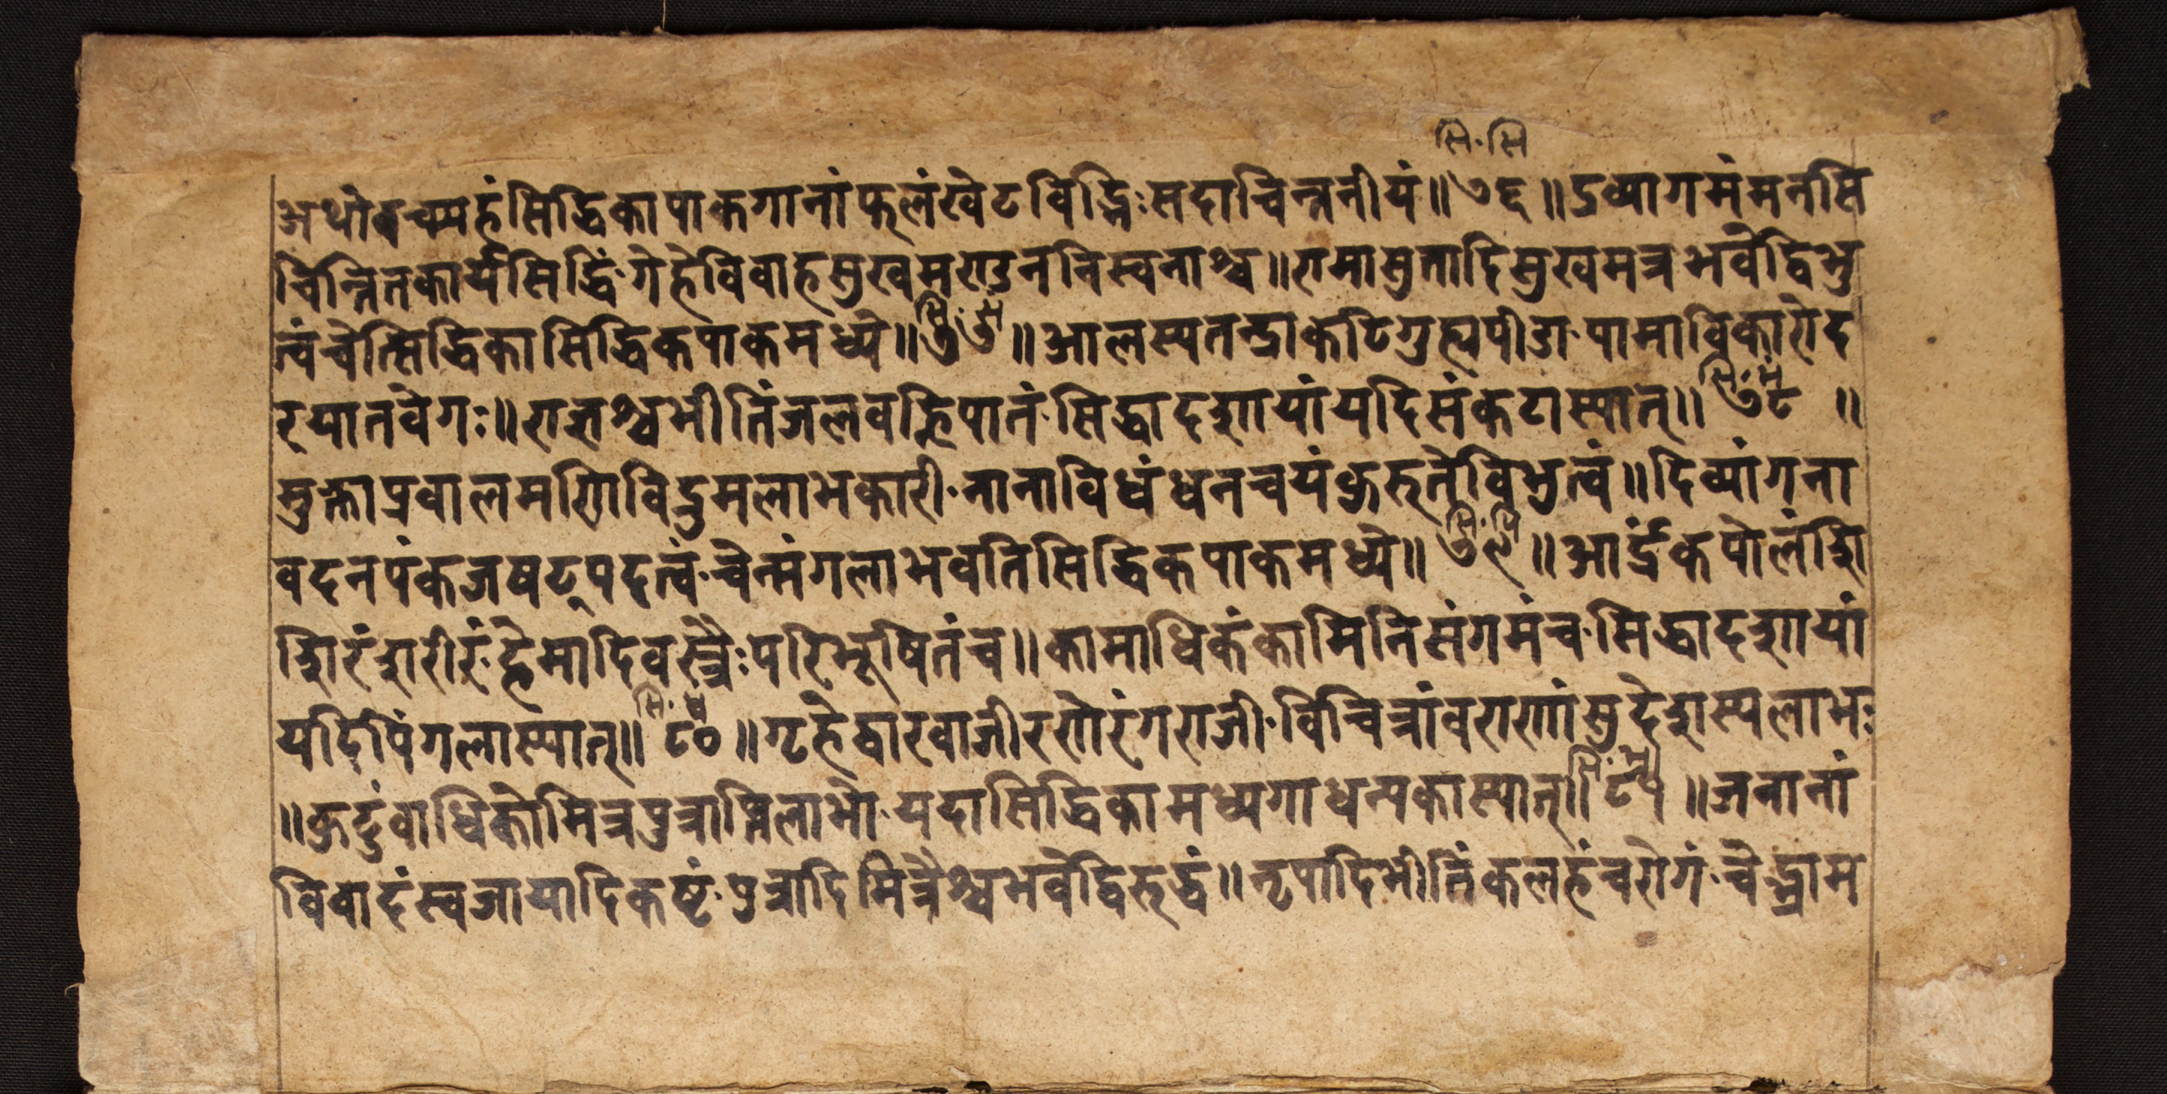 सि॰सि
अथोवच्म्यहंसिद्धिकापाकगानांफलंखेटविद्भिःसदाचिन्तनीयं॥७६॥द्रव्यागमंमनसि
चिन्तितकार्यसिद्धिं॰गेहेविवाहसुख निस्वनाश्च॥रामासुतादिसुखमत्रभवेद्विभु
सि॰सं
त्वंचेत्सिद्धिकासिद्धिकपाकमध्ये॥७७॥आलस्यतन्द्राकटिगुह्यपीडा॰पामाविकारोद
सि॰सं
रयातवेगः॥राज्ञश्चभीतिंजलवह्निपातं॰सिद्धादशायांयदिसंकटास्यात्॥७८॥
मुक्ताप्रवालमणिविद्रुमलाभकारी॰नानाविधंधनचयंकुरुतेविभुत्वं॥दिव्यांगना
सि॰मं
वदनपंकजषट्पदत्वं॰चेन्मंगलाभवतिसिद्धिकपाकमध्ये॥७९॥आर्द्रंकपोलंशि
शिरंशरीरं॰हेमादिवस्त्रैःपरिभूषितंच॥कामाधिकंकामिनिसंगमंच॰सिद्धादशायां
सि॰पिं
यदिपिंगलास्यात्॥८०॥गृहेद्वारवाजीरणेरंगराजी॰विचित्रांवराणांसुहेशस्यलाभः
सि॰ध
॥कुटुंवाधिकोमित्रपुत्राप्तिलाभो॰यदासिद्धिकामध्यगाधन्यकास्यात्॥८१॥जनानां
विवादंस्वजायादिकष्टं॰पुत्रादिमित्रैश्चभवेद्विरुद्धं॥नृपादिभीतिंकलहंचरोगं॰चेद्भ्राम